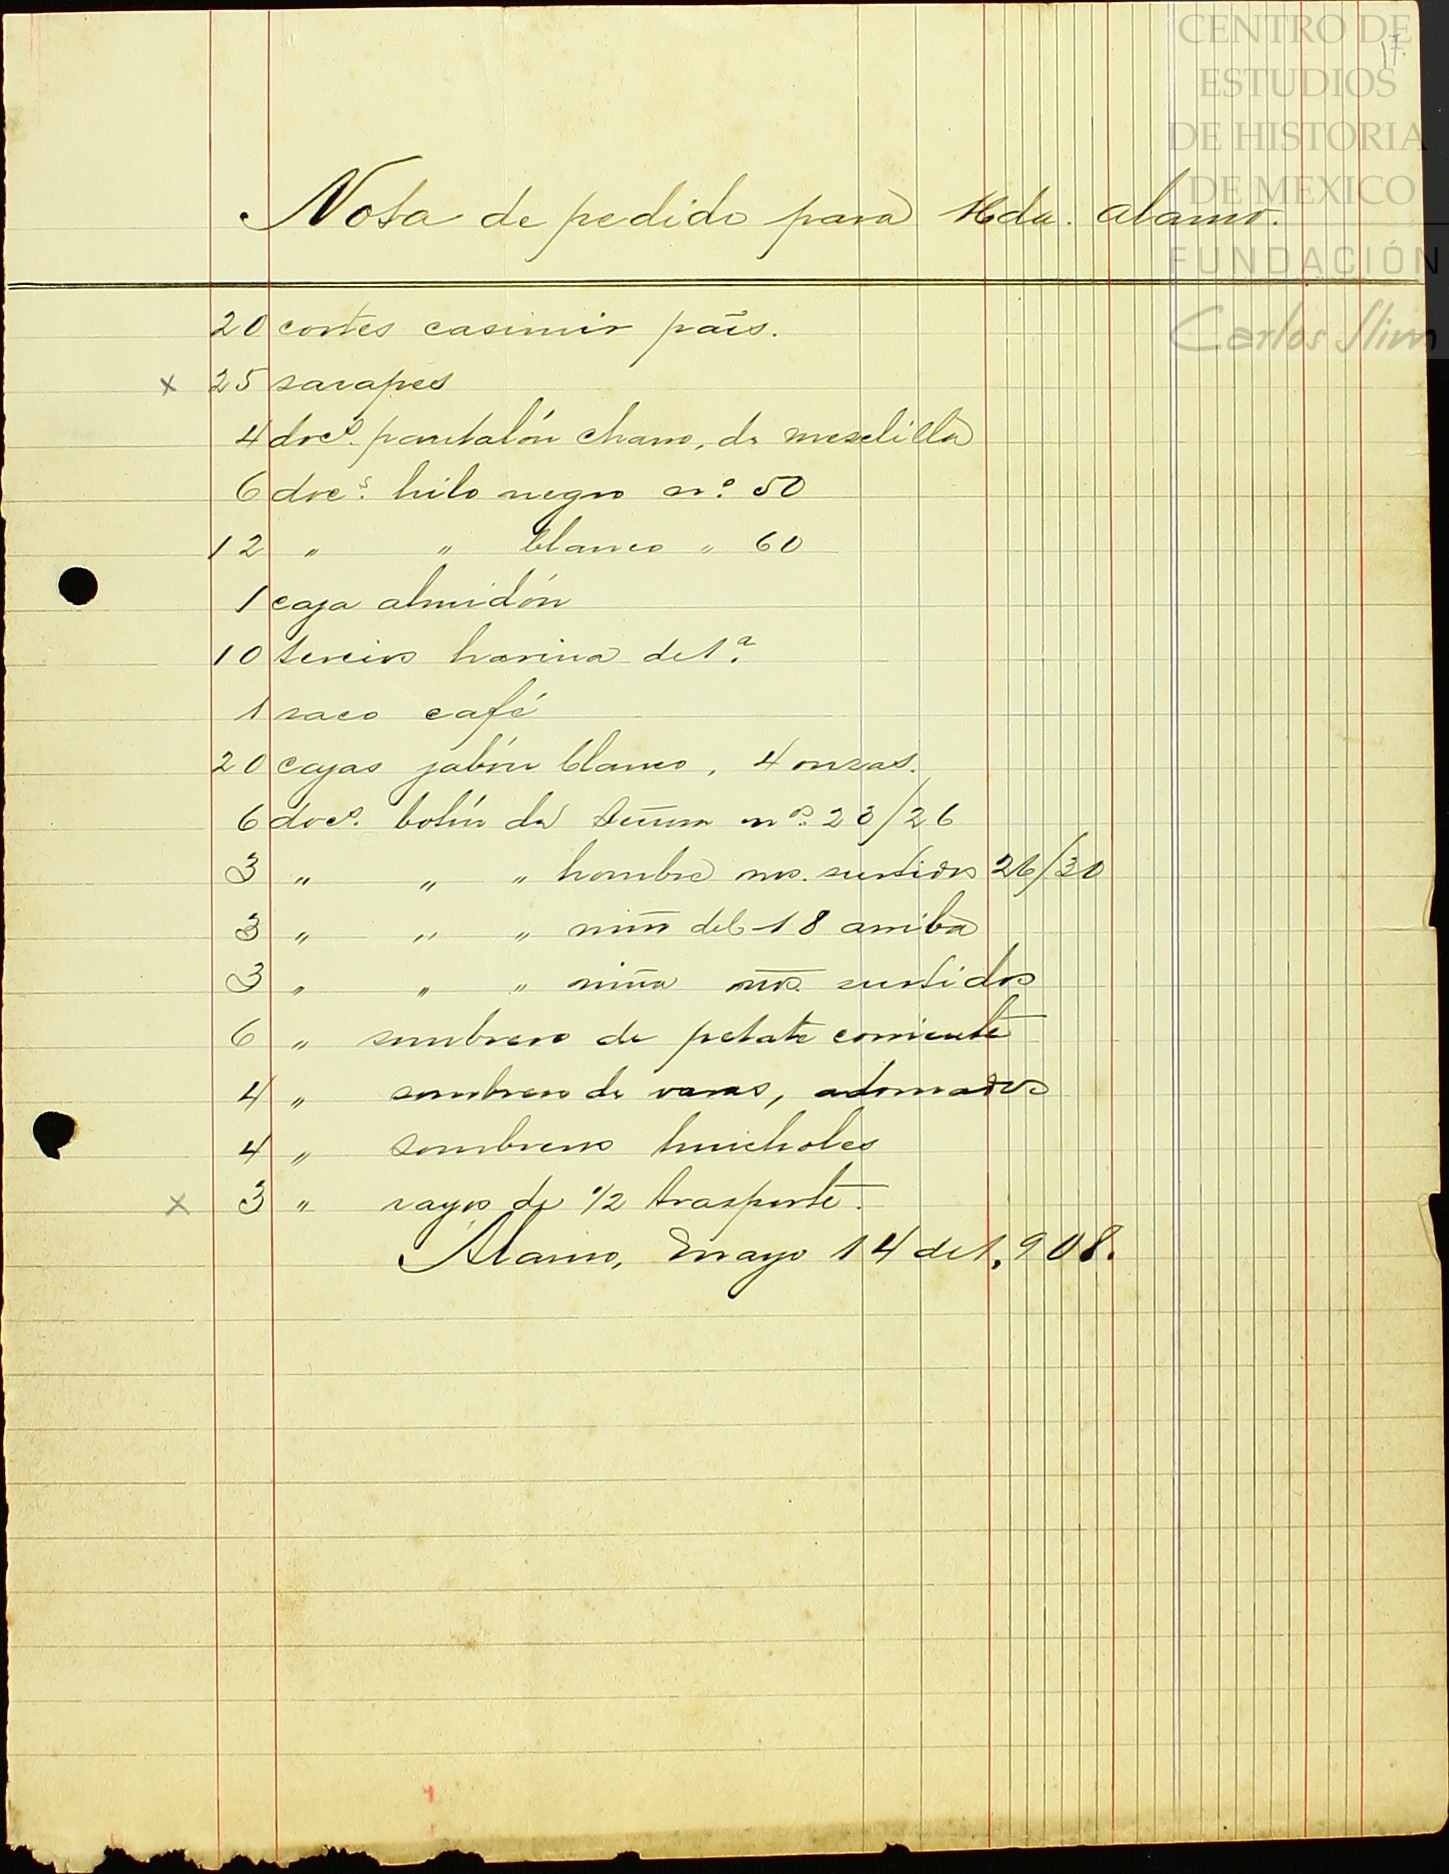 CENTRO DE
ESTUDIOS
DE HISTORIA
DE MEXICO
FUNDACIÓN
Carlos Slim
17.
Nota de pedido para Hda. Alamo.
20 cortes casimir país.
x 25 sarapes
4 docs. pantalón charro, de mesclilla
6 docs. hilo negro no. 50
12 " " blanco " 60
1 caja almidón
10 tercios harina de 1a.
1 saco café
20 cajas jabón blanco, 4 onzas.
6 docs. botín de nos. 23/26
3 " " " hombre nos. surtidos 26/30
3 " " " niño del 18 arriba
3 " " " niña nos. surtidos
6 " sombrero de petate corriente
4 " sombrero de varas, adornados
4 " sombreros huicholes
x 3 " rayos de 1/2 trasporte.
Alamo, Mayo 14 de 1,908.